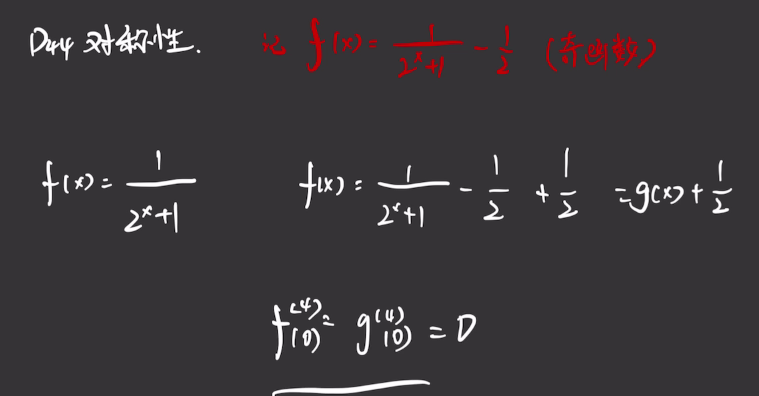 D44 对称性. 记 f(x) = 1/(2^x+1) - 1/2 (奇函数)
f(x) = 1/(2^x+1) f(x) = 1/(2^x+1) - 1/2 + 1/2 = g(x) + 1/2
f^(4)(0) = g^(4)(0) = 0